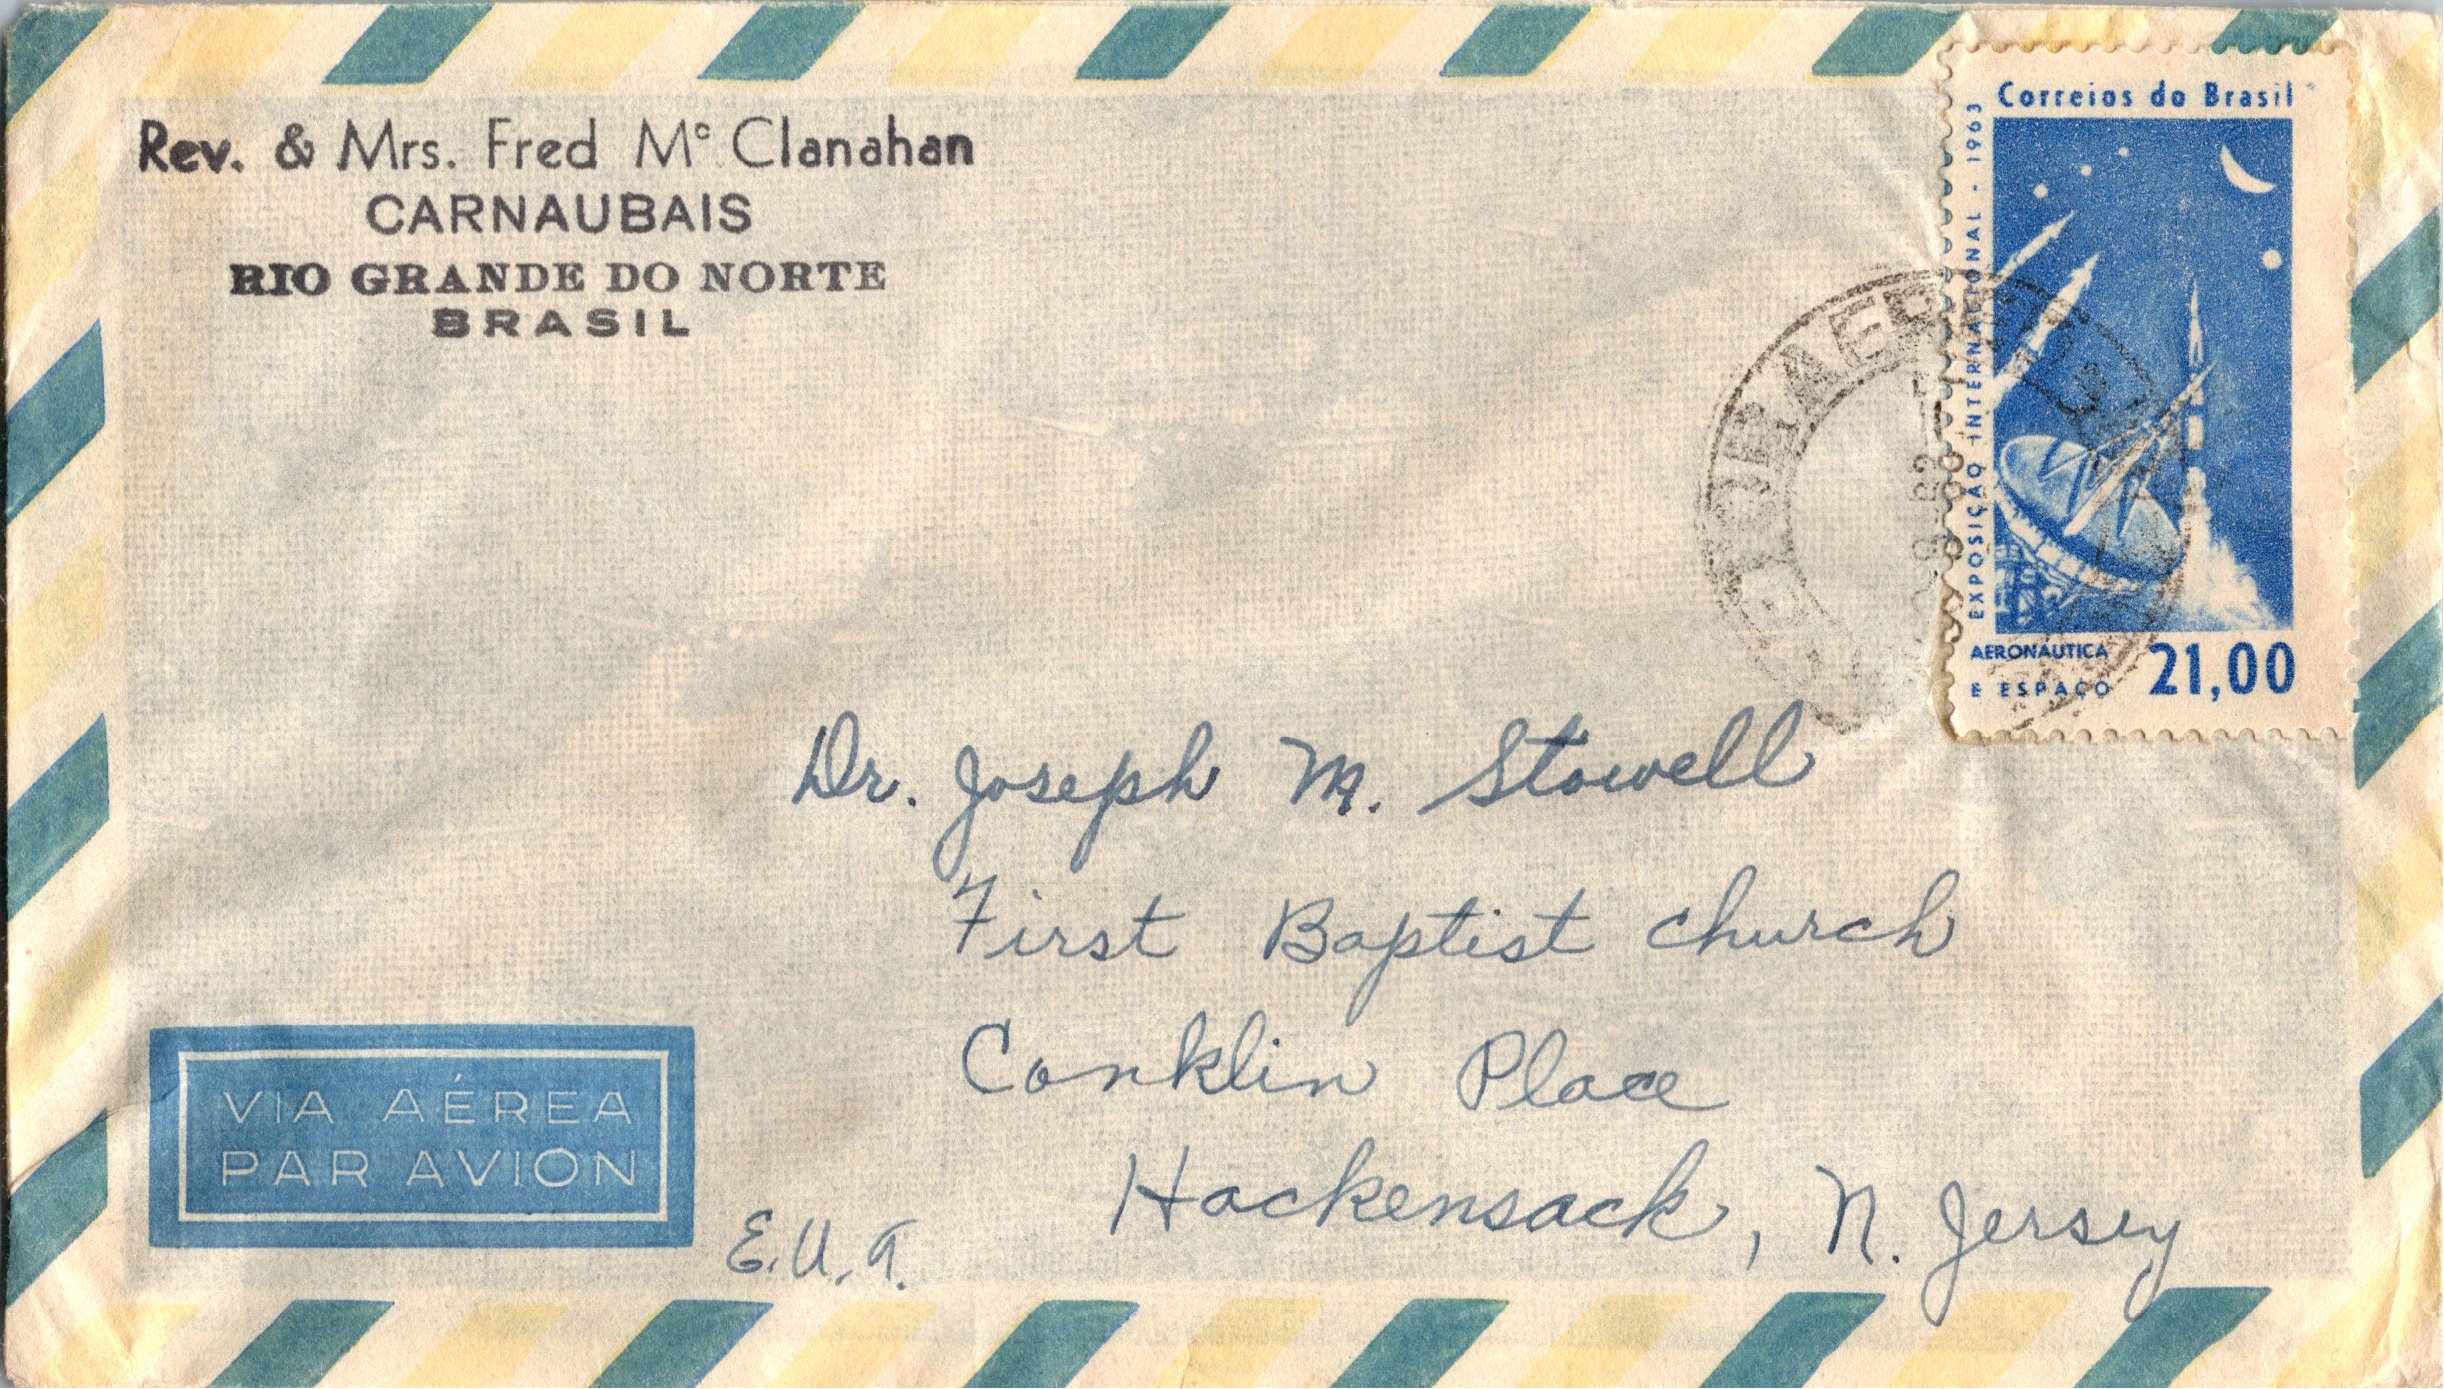 Rev. & Mrs. Fred Mc Clanahan
CARNAUBAIS
RIO GRANDE DO NORTE
BRASIL
Correios do Brasil
EXPOSIÇÃO INTERNACIONAL - 1963
AERONÁUTICA
E ESPAÇO
21,00
Dr. Joseph M. Stowell
First Baptist Church
Conklin Place
Hackensack, N. Jersey
E.U.A.
VIA AÉREA
PAR AVION